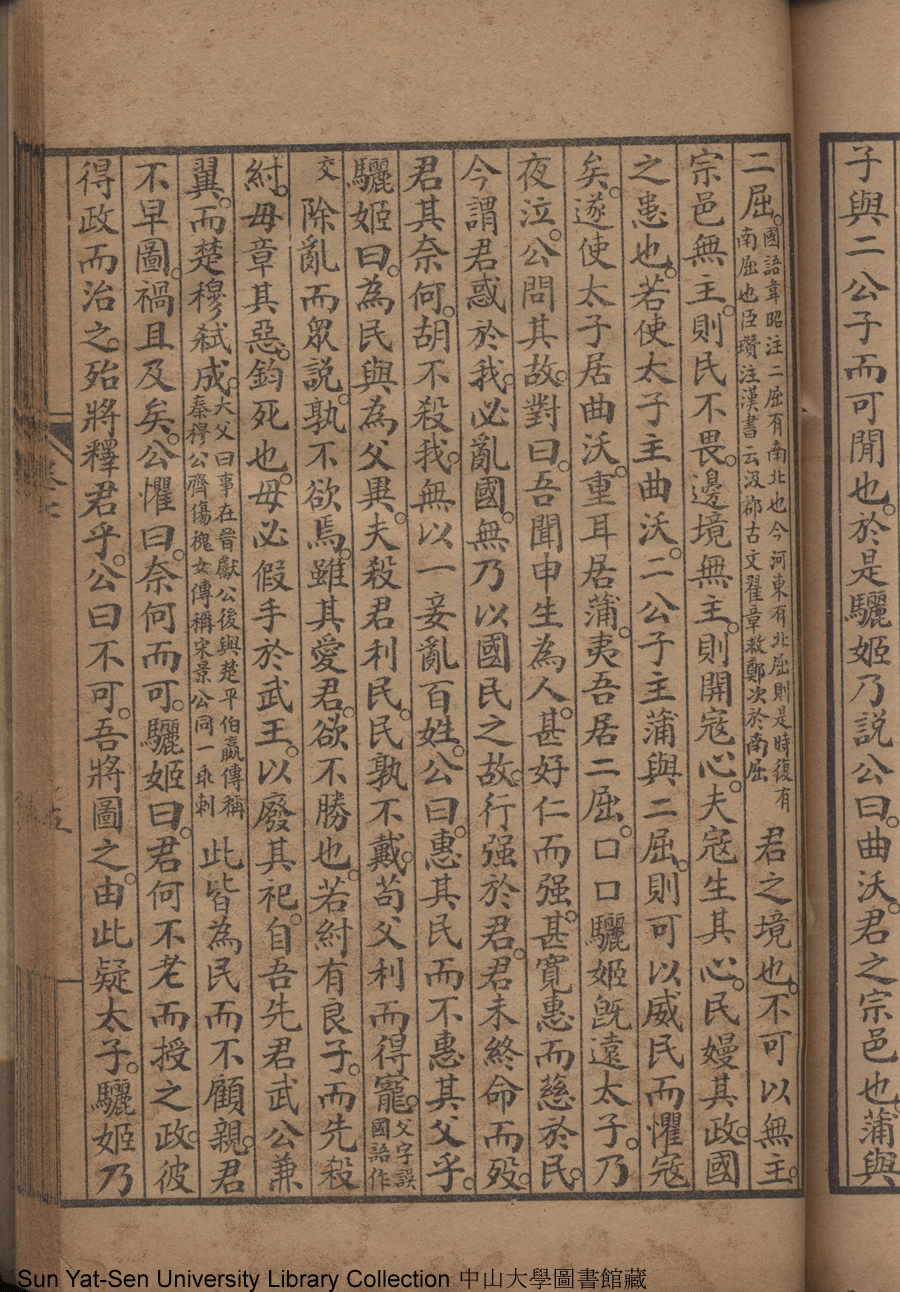 子與二公子而可閒也。於是驪姬乃說公曰。曲沃。君之宗邑也。蒲與
二屈。國語韋昭注二屈有南北也今河東有北屈則是時復有南屈也臣瓚注漢書云汲郡古文翟章救鄭次於南屈君之境也。不可以無主。
宗邑無主。則民不畏。邊境無主。則開寇心。夫寇生其心。民嫚其政。國
之患也。若使太子主曲沃。二公子主蒲與二屈。則可以威民而懼寇
矣。遂使太子居曲沃。重耳居蒲。夷吾居二屈。口口驪姬旣遠太子。乃
夜泣。公問其故。對曰。吾聞申生為人。甚好仁而强。甚寬惠而慈於民。
今謂君惑於我。必亂國。無乃以國民之故。行强於君。君未終命而歿。
君其奈何。胡不殺我。無以一妾亂百姓。公曰。惠其民而不惠其父乎。
驪姬曰。為民與為父異。夫殺君利民。民孰不戴。苟父利而得寵。父字誤國語作
交除亂而眾說。孰不欲焉。雖其愛君。欲不勝也。若紂有良子。而先殺
紂。毋章其惡。鈞死也。毋必假手於武王。以廢其祀。自吾先君武公兼
翼。而楚穆弒成。大父曰事在晉獻公後與楚平伯嬴傳稱秦穆公齊傷槐女傳稱宋景公同一乖刺此皆為民而不顧親。君
不早圖。禍且及矣。公懼曰。奈何而可。驪姬曰。君何不老而授之政。彼
得政而治之。殆將釋君乎。公曰不可。吾將圖之。由此疑太子。驪姬乃
Sun Yat-Sen University Library Collection 中山大學圖書館藏